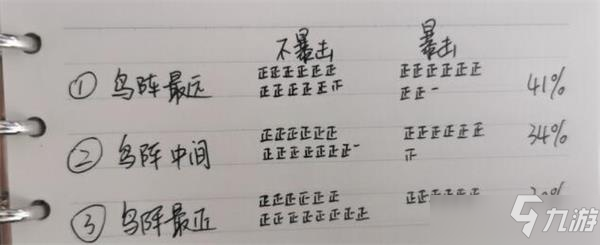 不暴击 暴击
① 鸟阵最远 正正正正正正 正正正正正正 41%
正正正正正正 正正一
② 鸟阵中间 正正正正正正 正正正正正正 34%
正正正正正正正一 正
③ 鸟阵最正 正正正正正正
正正正正正正正正
九游